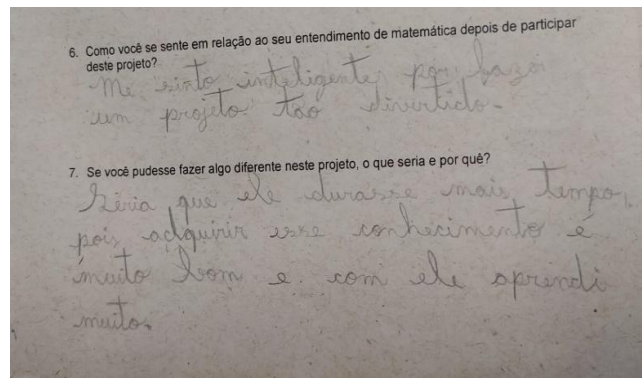 6. Como você se sente em relação ao seu entendimento de matemática depois de participar
deste projeto?
Me sinto inteligente, por fazer
um projeto tão divertido.
7. Se você pudesse fazer algo diferente neste projeto, o que seria e por quê?
Séria que ele durasse mais tempo,
pois adquirir esse conhecimento é
muito bom e com ele aprendi
muito.